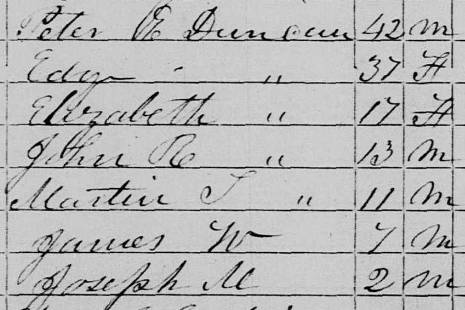 Peter E Duncan 42 m
Edy " 37 F
Elizabeth " 17 F
John R " 13 m
Martin T " 11 m
James W 7 m
Joseph M 2 m